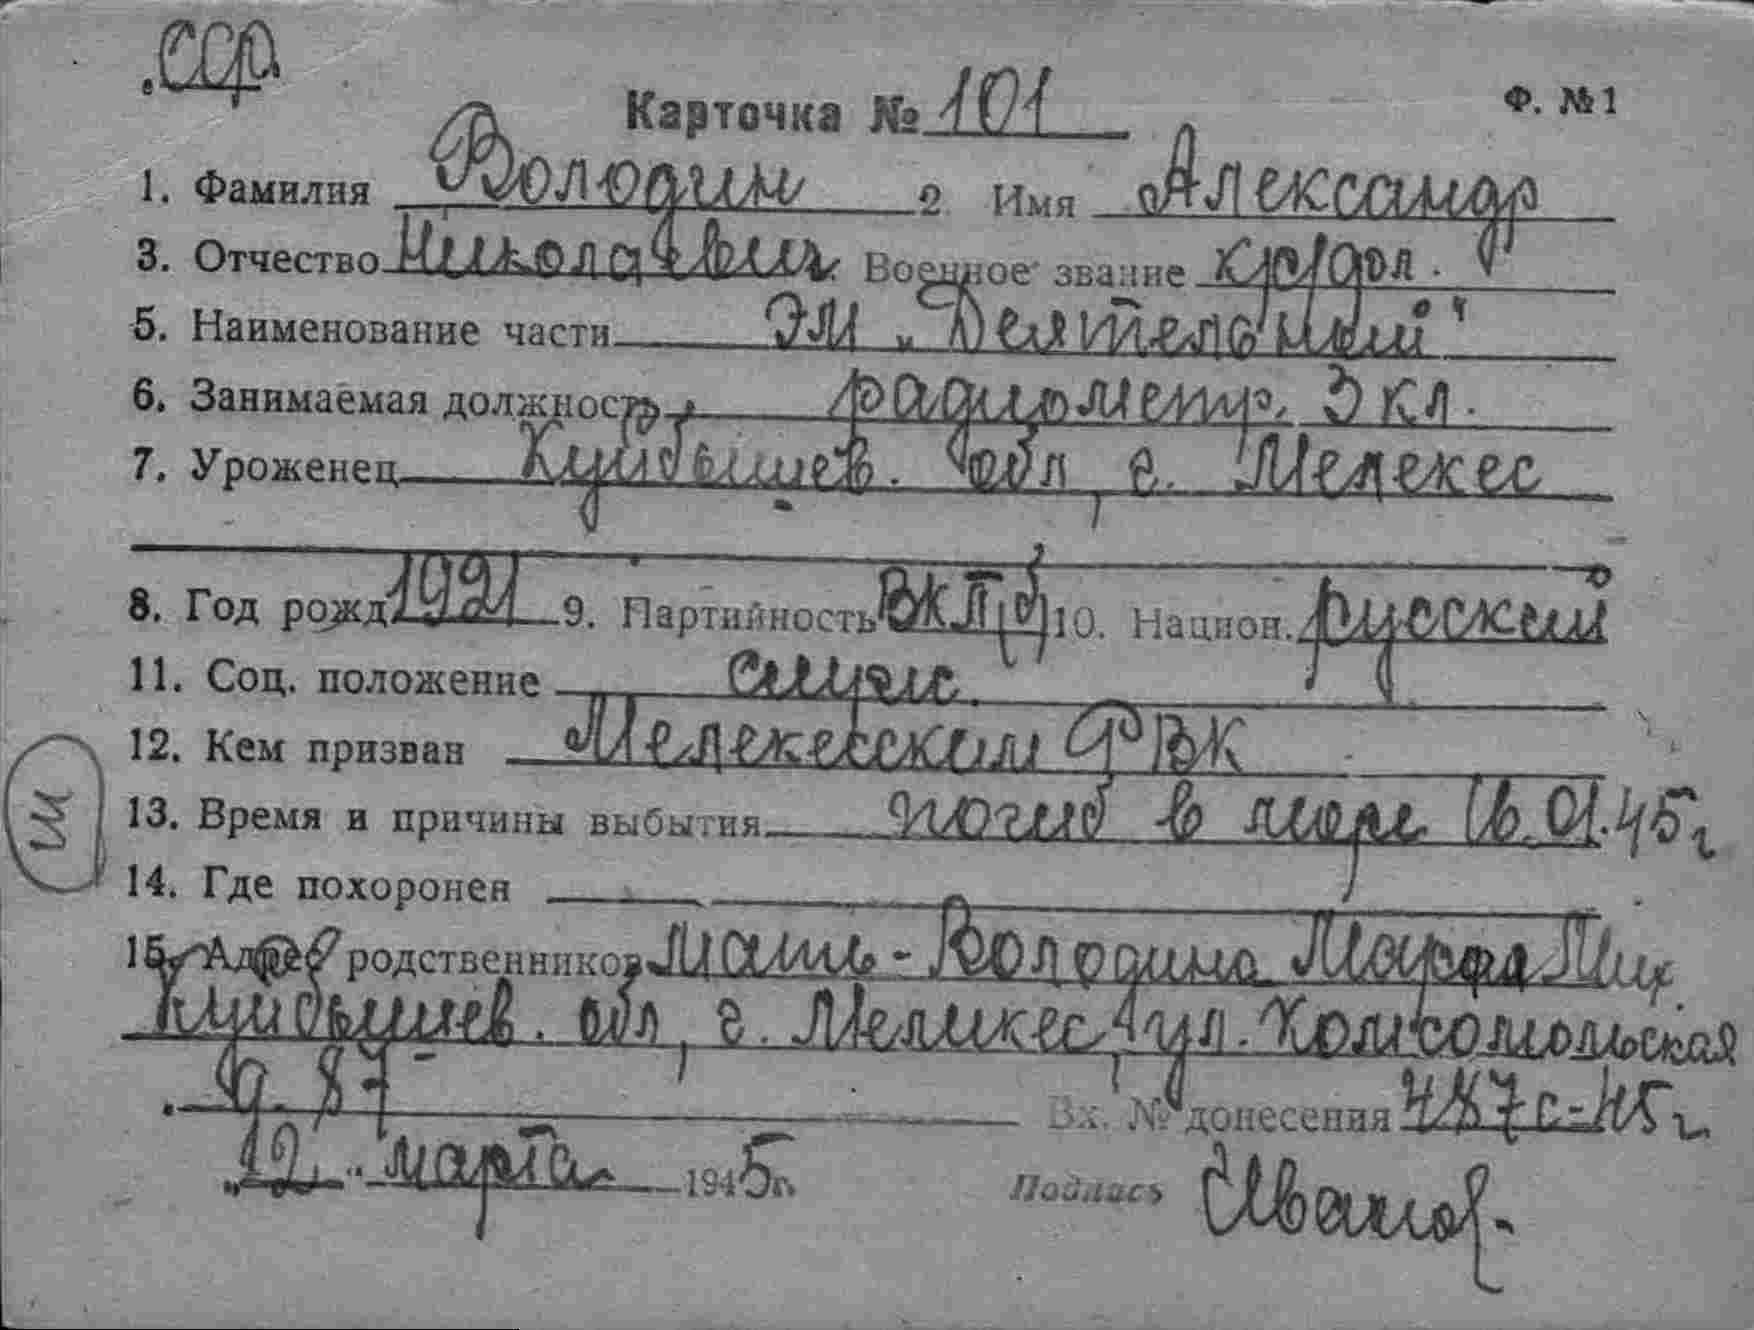 ССР
Карточка № 101 Ф. №1
1. Фамилия Володин 2 Имя Александр
3. Отчество Николаевич Военное звание кр/фл.
5. Наименование части ЭМ „Деятельный"
6. Занимаемая должность радиометр. 3 кл.
7. Уроженец Куйбышев. обл, г. Мелекес
8. Год рожд 1921 9. Партийность ВКП(б) 10. Национ. русский
11. Соц. положение служ.
12. Кем призван Мелекесским РВК
13. Время и причины выбытия погиб в море 16.01.45г
14. Где похоронен
15. Адрес родственников Мать - Володина Марфа Мих
Куйбышев. обл, г. Меликес, ул. Комсомольская
д. 87 Вх. № донесения 487с-45г.
„12" марта 1945г. Подпись Иванов